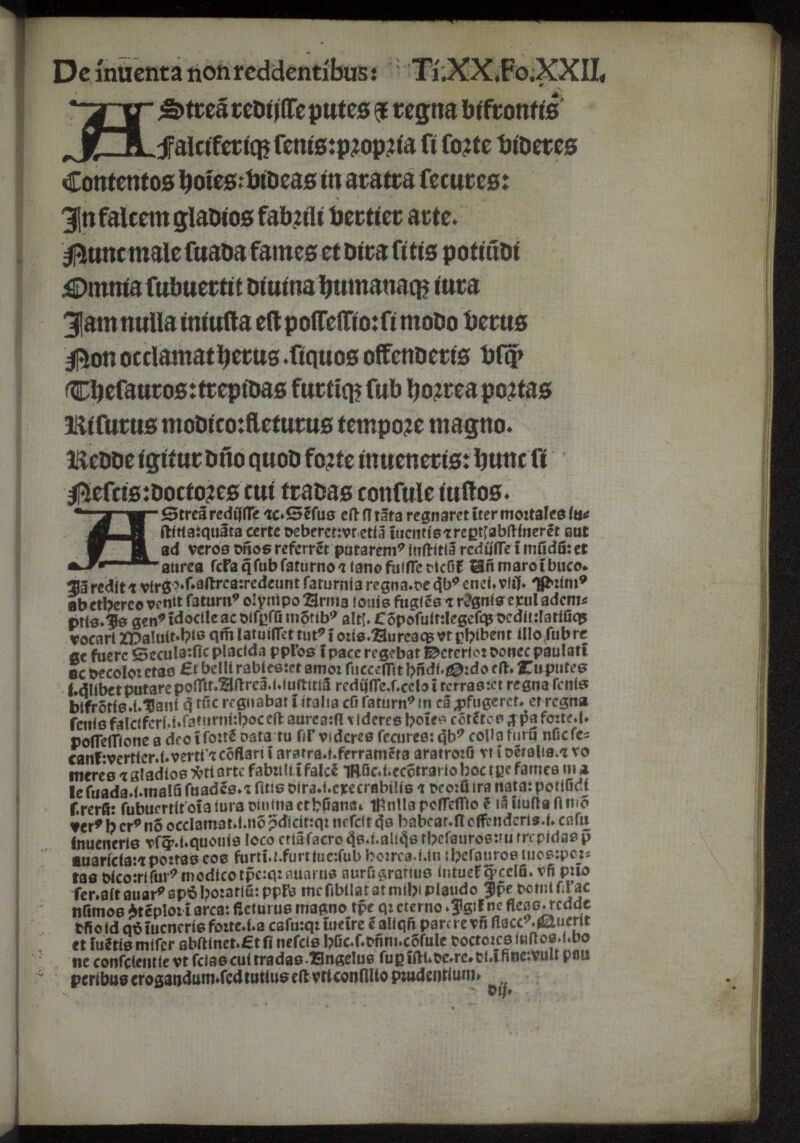 De inuenta non reddentibus: Ti.XX.Fo.XXII.
AStreã redijsse putes ⁊ regna bifrontis
Falciferiqꝫ senis: propria si forte videres
Contentos hoĩes: videas in aratra secures:
In falcem gladios fabrili vertier arte.
Nunc male suada fames et dira sitis potiũdi
Omnia subuertit diuina humanaqꝫ iura
Iam nulla iniusta est possessio: si modo verus
Non occlamat herus. siquos offenderis vsꝙ̃
Thesauros: trepidas furtĩqꝫ sub horrea portas
Risurus modico: fleturus tempore magno.
Redde igitur dño quod forte inueneris: hunc si
Nescis: doctores cui tradas consule iustos.
AStreã redijsse ⁊c. Sẽsus est si tãta regnaret ĩter mortales iu⸗
stitia: quãta certe deberet: vt etiã ĩuentis ⁊ rept abstinerẽt aut
ad veros dños referrẽt putaremꝰ iustitiã redijsse ĩ mũdũ: et
aurea sc̃la q̃ sub saturno ⁊ iano fuisse dicũt̃ Uñ maro ĩ buco.
Iã redit ⁊ virgo. s. astrea: redeunt saturnia regna. de q̃bꝰ enei. viij. Primꝰ
ab ethereo venit saturnꝰ olympo Arma iouis fugiẽs ⁊ regnis exul adem⸗
ptis. Is genꝰ ĩdocile ac dispsũ mõtibꝰ alt. Cõposuit: legesqꝫ dedit: latiũqꝫ
vocari Maluit. his qm̃ latuisset tutꝰ ĩ oris. Aureaqꝫ vt phibent illo sub re
ge fuere Secula: sic placida ppl̃os ĩ pace regebat Deterior donec paulatĩ
ac decolor etas Et belli rabies: et amor successit hñdi. Ordo est. Tu putes
i. q̃libet putare possit. Astreã. i. iustitiã redijsse. s. celo ĩ terras: et regna senis
bifrõtis. i. Iani q̃ tũc regnabat ĩ italia cũ saturnꝰ in eã ꝓfugeret. et regna
senis falciferi. i. saturni: hoc est aurea: si videres hoĩes cõtẽtos ꝓpa forte. i.
possessione a deo ĩ sortẽ data: tu sil̃ videres secures: q̃bꝰ colla furũ nũc se⸗
cant̃: vertier. i. verti ⁊ cõflari ĩ aratra. i. ferramẽta aratrorũ vt ĩ dẽtalia. ⁊ vo
meres ⁊ gladios v̾ti arte fabrili ĩ falcẽ Nũc. i. econtrario hoc tpe fames ma
le suada. i. malũ suadẽs. ⁊ sitis dira. i. execrabilis ⁊ deorũ ira nata: potiũdi
s. rerũ: subuertit oĩa iura diuina et hũana. Nulla possessio ẽ iã ĩiusta si mõ
verꝰ herꝰ nõ occlamat. i. nõ ꝯ̃dicit: qꝛ nescit q̃s habeat. si offenderis. i. casu
inueneris vsꝙ̃. i. quouis loco etiã sacro q̃s. i. aliq̃s thesauros: tu trepidas p̃
auaricia: ⁊ portas eos furtĩ. i. furtiue: sub horrea. i. in thesauros tuos: por⸗
tas dico: risurꝰ modico tp̃e: qꝛ auarus aurũ gratius intuet̃ ꝙ̃ celũ. vñ prio
ser. ait auarꝰ apd̾ horatiũ: ppl̃s me sibilat at mihi plaudo Ip̃e domi sil̃ ac
nũmos ꝯtẽplor ĩ arca: fleturus magno tp̃e qꝛ eterno. Igit̃ ne fleas. redde
dño id qd̾ ĩueneris forte. i. a casu: qꝛ ĩueire ẽ aliqñ parere vñ flaccꝰ. Querit
et ĩuẽtis miser abstinet. Et si nescis hũc. s. dñm. cõsule doctores iustos. i. bo
ne conscientie vt scias cui tradas. Angelus sup ĩsti. de. re. di. ĩ fine: vult pau
peribus erogandum. sed tutius est vti consilio prudentium.
dij.